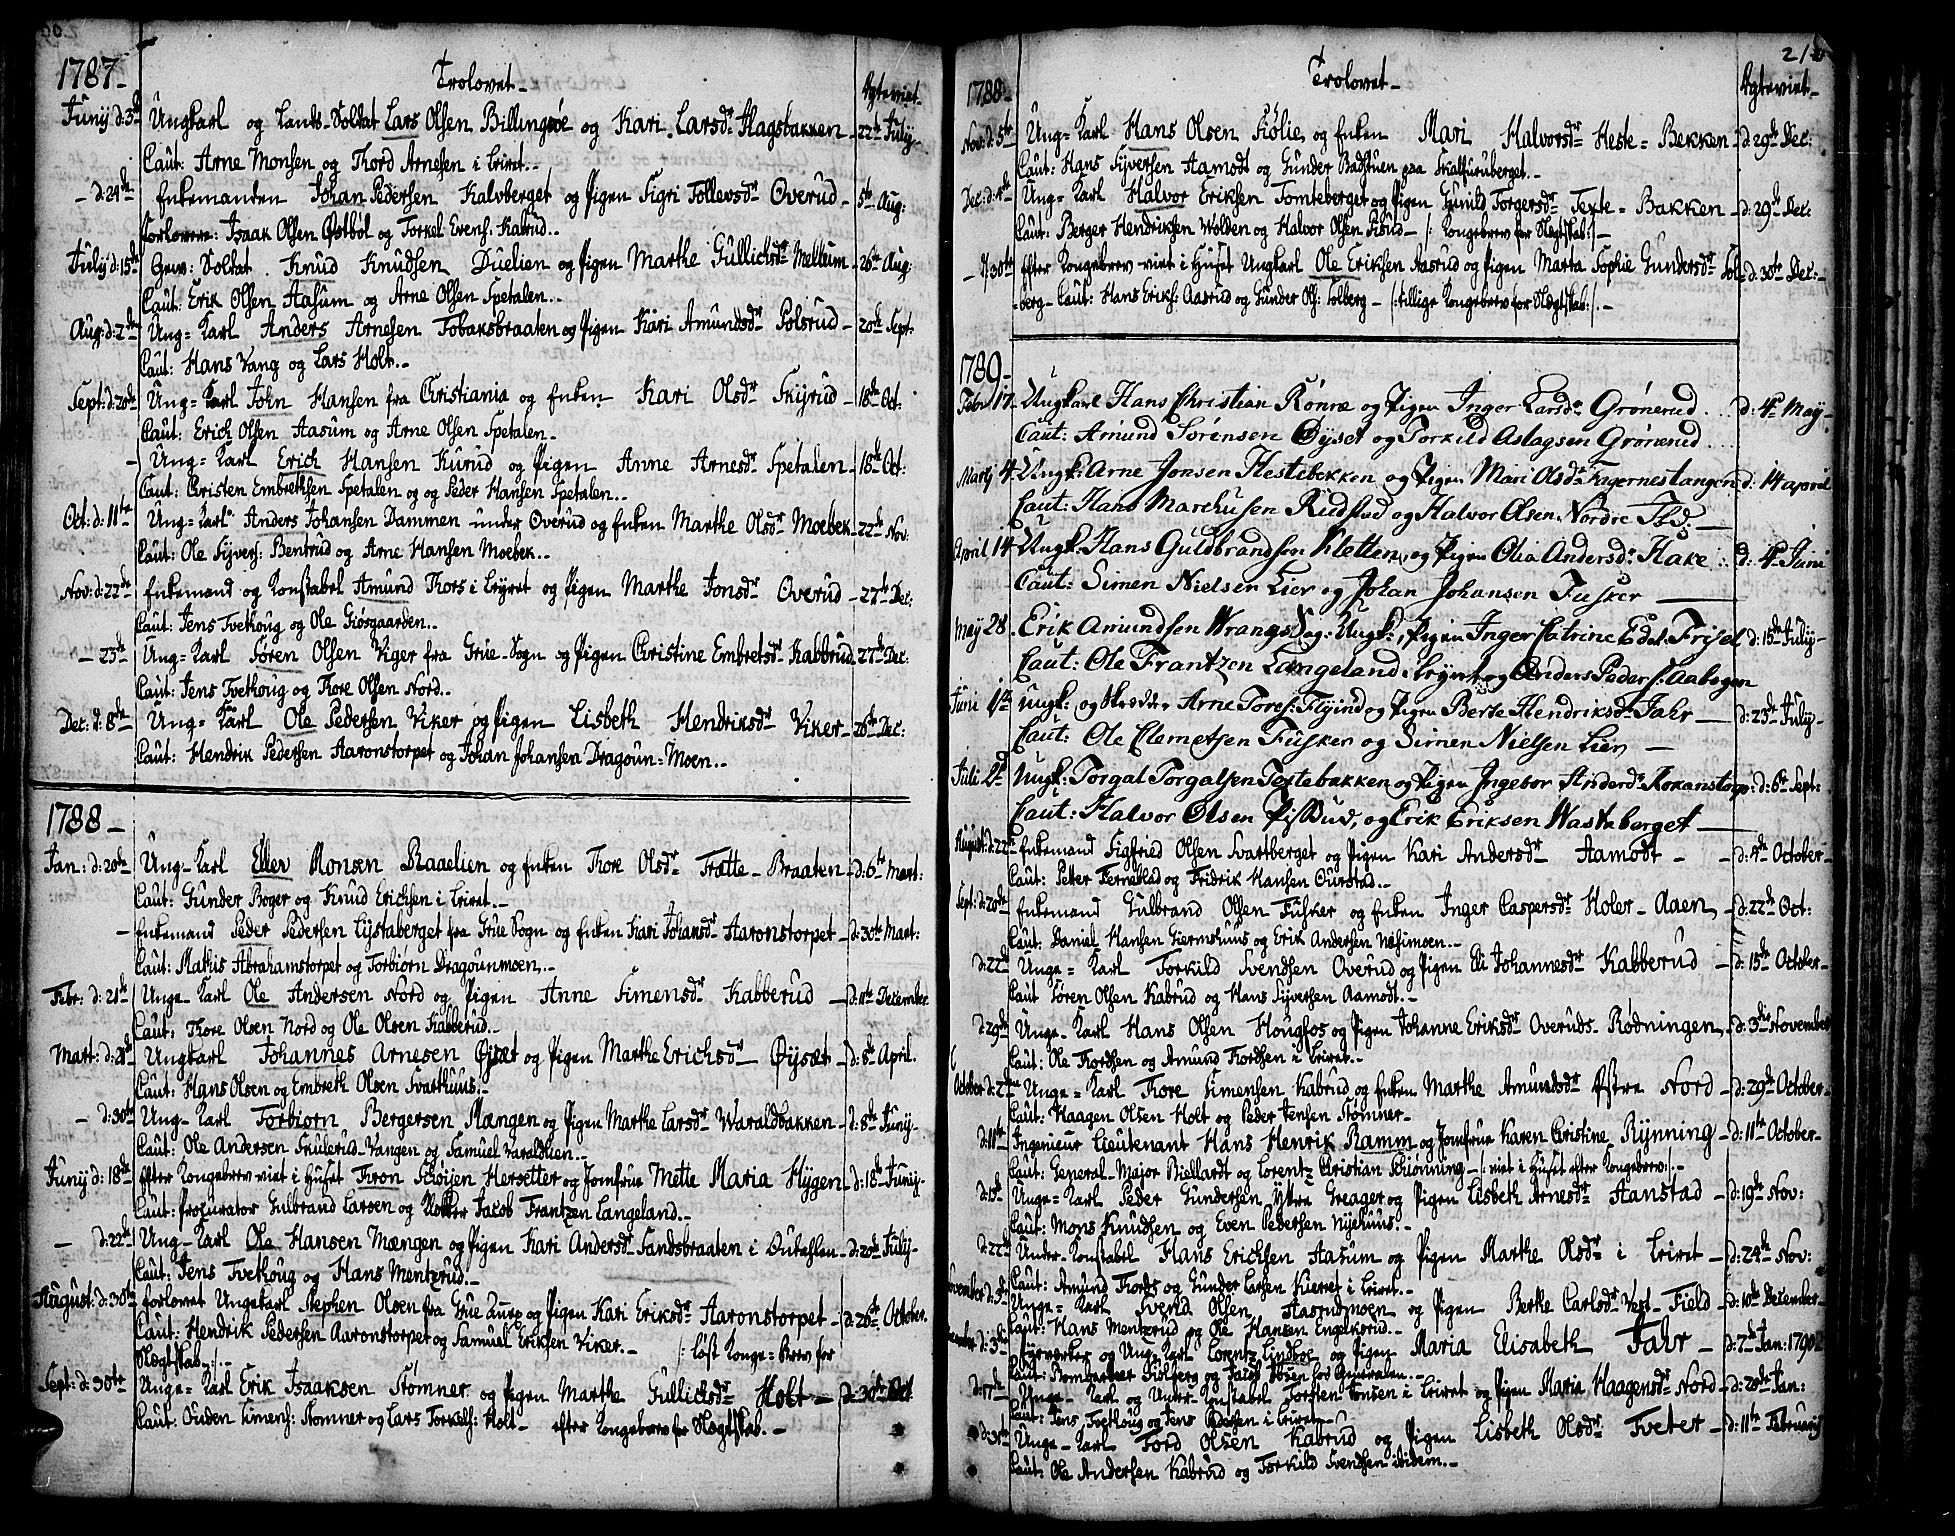 1787 –
Trolovet –
Ægteviet –
Junij d: 3de Ungkarl og Lands-Soldat Lars Olsen Billingsøe og Kari Larsdr Hagsbakken – 22de Julij –
Caut: Arne Monsen og Thord Arnesen i Leiret. –
– d: 24de Enkemanden Johan Pedersen Kalvberget og Pigen Sigri Tollevsdr Overud – 5te Aug:
Forlovere: Isaak Olsen Østbøl og Torkel Evens: Kabrud. –
Julij d: 15de Gev: Soldat Knud Knudsen Duelien og Pigen Marthe Gullichsdr Mellum – 26de Aug:
Caut: Erik Olsen Aasum og Arne Olsen Spetalen. –
Aug: d: 2den Ung=Karl Anders Arnesen Tobaksbraaten og Pigen Kari Amundsdr Polsrud – 20de Sept:
Caut: Hans Vang og Lars Holt. –
Sept: d: 20de Ung=Karl John Hansen fra Christiania og Enken Kari Olsdr Skijrud – 18de Oct:
Caut: Erich Olsen Aasum og Arne Olsen Spetalen –
– Ung=Karl Erich Hansen Kurud og Pigen Anne Arnesdr Spetalen – 18de Oct:
Caut: Christen Embrethsen Spetalen og og Peder Hansen Spetalen. –
Oct: d: 11te Ung=Karl Anders Johansen Dammen under Overud og Enken Marthe Olsdr Moebek – 22de Nov:
Caut: Ole Syvers: Bentrud og Arne Hansen Moebek. –
Nov: d: 22de Enkemand og Konstabel Amund Thors i Leyret og Pigen Marthe Jonsdr Overud – 27de Dec:
Caut: Jens Tvethoug og Ole Giøsgaarden. –
– 23de Ung=Karl Søren Olsen Viger fra Grue-Sogn og Pigen Christine Embretsdr Kabbrud – 27de Dec:
Caut: Jens Tvethoug og Thore Olsen Nord. –
Dec: d: 8de Ung=Karl Ole Pedersen Viker og Pigen Lisbeth Hendriksdr Viker – 26de Dec:
Caut: Hendrik Pedersen Aaronstorpet og Johan Johansen Dragoun=Moen. –
1788 –
Jan: d: 20de Ung-Karl Eller Monsen Raaelien og Enken Thore Olsdr Trætte-Braaten – d: 6te Mart:
Caut: Gunder Boger og Knud Erichsen i Leiret. –
– Enkemand Peder Pedersen Lystaberget fra Grue Sogn og Enken Kari Johansdr Aaronstorpet – d: 30te Mart:
Caut: Mathis Abrahamstorpet og Torbiørn Dragounmoen. –
Febr: d: 21de Unge-Karl Ole Andersen Nord og Pigen Anne Simensdr Kabberud – d: 11te December
Caut: Thore Olsen Nord og Ole Olsen Kabberud. –
Mart: d: 21de Ungkarl Johannes Arnesen Øysæt og Pigen Marthe Erichsdr Øysæt – d: 8de April.
Caut: Hans Olsen og Embreth Olsen Svarthuus. –
– d: 30te Ung-Karl Torbiørn Bergersen Mængen og Pigen Marthe Larsdr Waraldbakken – d: 8de Junij –
Caut: Ole Andersen Skulerud-Vangen og Samuel Varaldlien. –
Junij d: 18de Efter Kongebrev viet i Huset Tron Skøijen Hersetter og Jomfrue Mette Maria Hygen – d: 18de Junij –
Caut: Procurator Gulbrand Larsen og Jacob Frantzen Langeland. –
– d: 22de Ung-Karl Ole Hansen Mængen og Pigen Kari Andersdr Sandsbraaten i Outahlen – d: 20de Julij –
Caut: Jens Tvethoug og Hans Mentzrud. –
August: d: 30te forlovet Ungekarl Stephen Olsen fra Grue og Pigen Kari Eriksdr Aaronstorpet – d: 26de October.
Caut: Hendrik Pedersen Aaronstorpet og Samuel Eriksen Viker. – /: løst Konge=Brev for
Slægtskab. :/. –
Sept: d: 30te Unge-Karl Erik Isaaksen Stømner og Pigen Marthe Gullichsdr Holt – d: 30te Oct
Caut: Ouden Simens: Stømner og Lars Torkels: Holt – efter Kongebrev for Slægtskab. –
210
1788 –
Trolovet –
Ægteviet –
Nov: d: 5te Ung=Karl Hans Olsen Fiølie og Enken Mari Halvorsdr Heste=Bekken – d: 29de Dec:
Caut: Hans Syversen Aamodt og Gunder Badstuen paa Skalfuruberget. –
Dec: d: 4de Ung=Karl Halvor Eriksen Tomteberget og Pigen Gunild Torgersdr Texte=Bakken – d: 29de Dec:
Caut: Berger Hendriksen Wolden og Halvor Olsen Pisud – /: Kongebrev for Slægtskab :/ –
– d: 30te Efter Kongebrev viet i Huset Ungkarl Ole Eriksen Aasrud og Pigen Marta Sophie Gundersdr Sol= – d: 30te Dec: –
=berg – Caut: Hans Eriks: Aasrud og Gunder Ols: Solberg – /: tillige Kongebrev for Slægtskab :/. –
1789 –
Febr 17 – Ungkarl Hans Christian Rönne og Pigen Inger Larsdr Grönerud – d: 4de May –
Caut: Amund Sörensen Öyset og Torkild Aslagsen Grönerud
Martj 4 – Ungk: Arne Jonsen Hestebekken og Pigen Mari Olsdr Fagernestangen d: 14 april
Caut: Hans Marchusen Rudstad og Halvor Olsen Nordre
April 14 – Ungk: Hans Guldbrandsen Kletten og Pigen Olia Andersdr Hake – d: 4de Juni
Caut: Simen Nielsen Lier og Johan Johansen Fusker –
May 28. Erik Amundsen Wrangs: Ungk: Pigen Inger Catrine Frisel d: 15de Julij –
Caut: Ole Frantzen Langeland i Leyret og Anders Peders: Aabogen
Juni 1ste Ungk: og Skredder Arne Tores: Flyind og Pigen Berte Hendriksdr Jahr – d: 23de Julij –
Caut: Ole Clemetsen Fusker og Simen Nielsen Lier –
Juli 2d Ungk: Torgal Torgalsen Textebakken og Pigen Ingebor Andersdr Rokanstorp: d: 6te Sept:
Caut: Halvor Olsen Pissud, og Erik Eriksen Wastaberget –
August: d: 22de Enkemand Sigfried Olsen Svartberget og Pigen Kari Andersdr Aamodt – d: 4de October –
Caut: Petter Fernestad og Fridrik Hansen Ourstad. –
Sept: d: 20de Enkemand Gulbrand Olsen Fusker og Enken Inger Caspersdr Holer-Aaen – d: 22de Oct:
Caut: Daniel Hansen Giermshuus og Erik Andersen Næsimoen. –
d: 22de Unge=Karl Torkild Svendsen Overud og Pigen Eli Johannesdr Kabberud – d: 15de October –
Caut Søren Olsen Kabrud og Hans Syversen Aamodt. –
d: 29de Unge-Karl Hans Olsen Hougfos og Pigen Johanne Eriksdr Overuds-Rodningen – d: 3die November
Caut: Ole Thordsen og Amund Thordsen i Leiret. –
October d: 2den Unge=Karl Thore Simensen Kabrud og Enken Marthe Amundsdr Østre Nord – d: 29de October –
Caut: Haagen Olsen Holt og Peder Jensen Stømner –
d: 11te Ingenieur Lieutenant Hans Henrik Ramm og Jomfrue Karen Christine Rynning – d: 11te October –
Caut: General-Major Biellardt og Lorentz Christian Schiønning – /: viet i Huset efter Kongebrev :/. –
d: 15de Unge-Karl Peder Gundersen Yttre Greager og Pigen Lisbeth Arnesdr Aanstad – d: 19de Nov:
Caut: Mons Knudsen og Even Pedersen Nyehuus. –
d: 22de Under-Konstabel Hans Erichsen Aasum og Pigen Marthe Olsdr i Leiret – d: 24de Nov:
Caut: Amund Thords og Gunder Larsen Kierret i Leiret. –
November d: 3die Unge=Karl Svend Olsen Aasrudmoen og Pigen Berthe Carlsdr Vest-Field – d: 10de December –
Caut: Hans Mentzrud og Ole Hansen Engelksrud. –
December d: 3die Fyrverker og Ung-Karl Lorentz Lindboe og Pigen Maria Elisabeth Jahr – d: 2de Jan: 1790
Caut: Bombardeer Solberg og Jacob hos Generalen. –
d: 17de Unge-Karl og Under-Konstabel Torsten Jonsen i Leiret og Pigen Maria Haagensdr Nord – d: 20de Jan:
Caut: Jens Tvethoug og Jens Pedersen i Leiret –
d: 31te Unge-Karl Tord Olsen Kabrud og Pigen Lisbeth Olsdr Tveter – d: 11te Februarij
Caut: Ole Andersen Kabrud og Torkild Svendsen ibidem. –